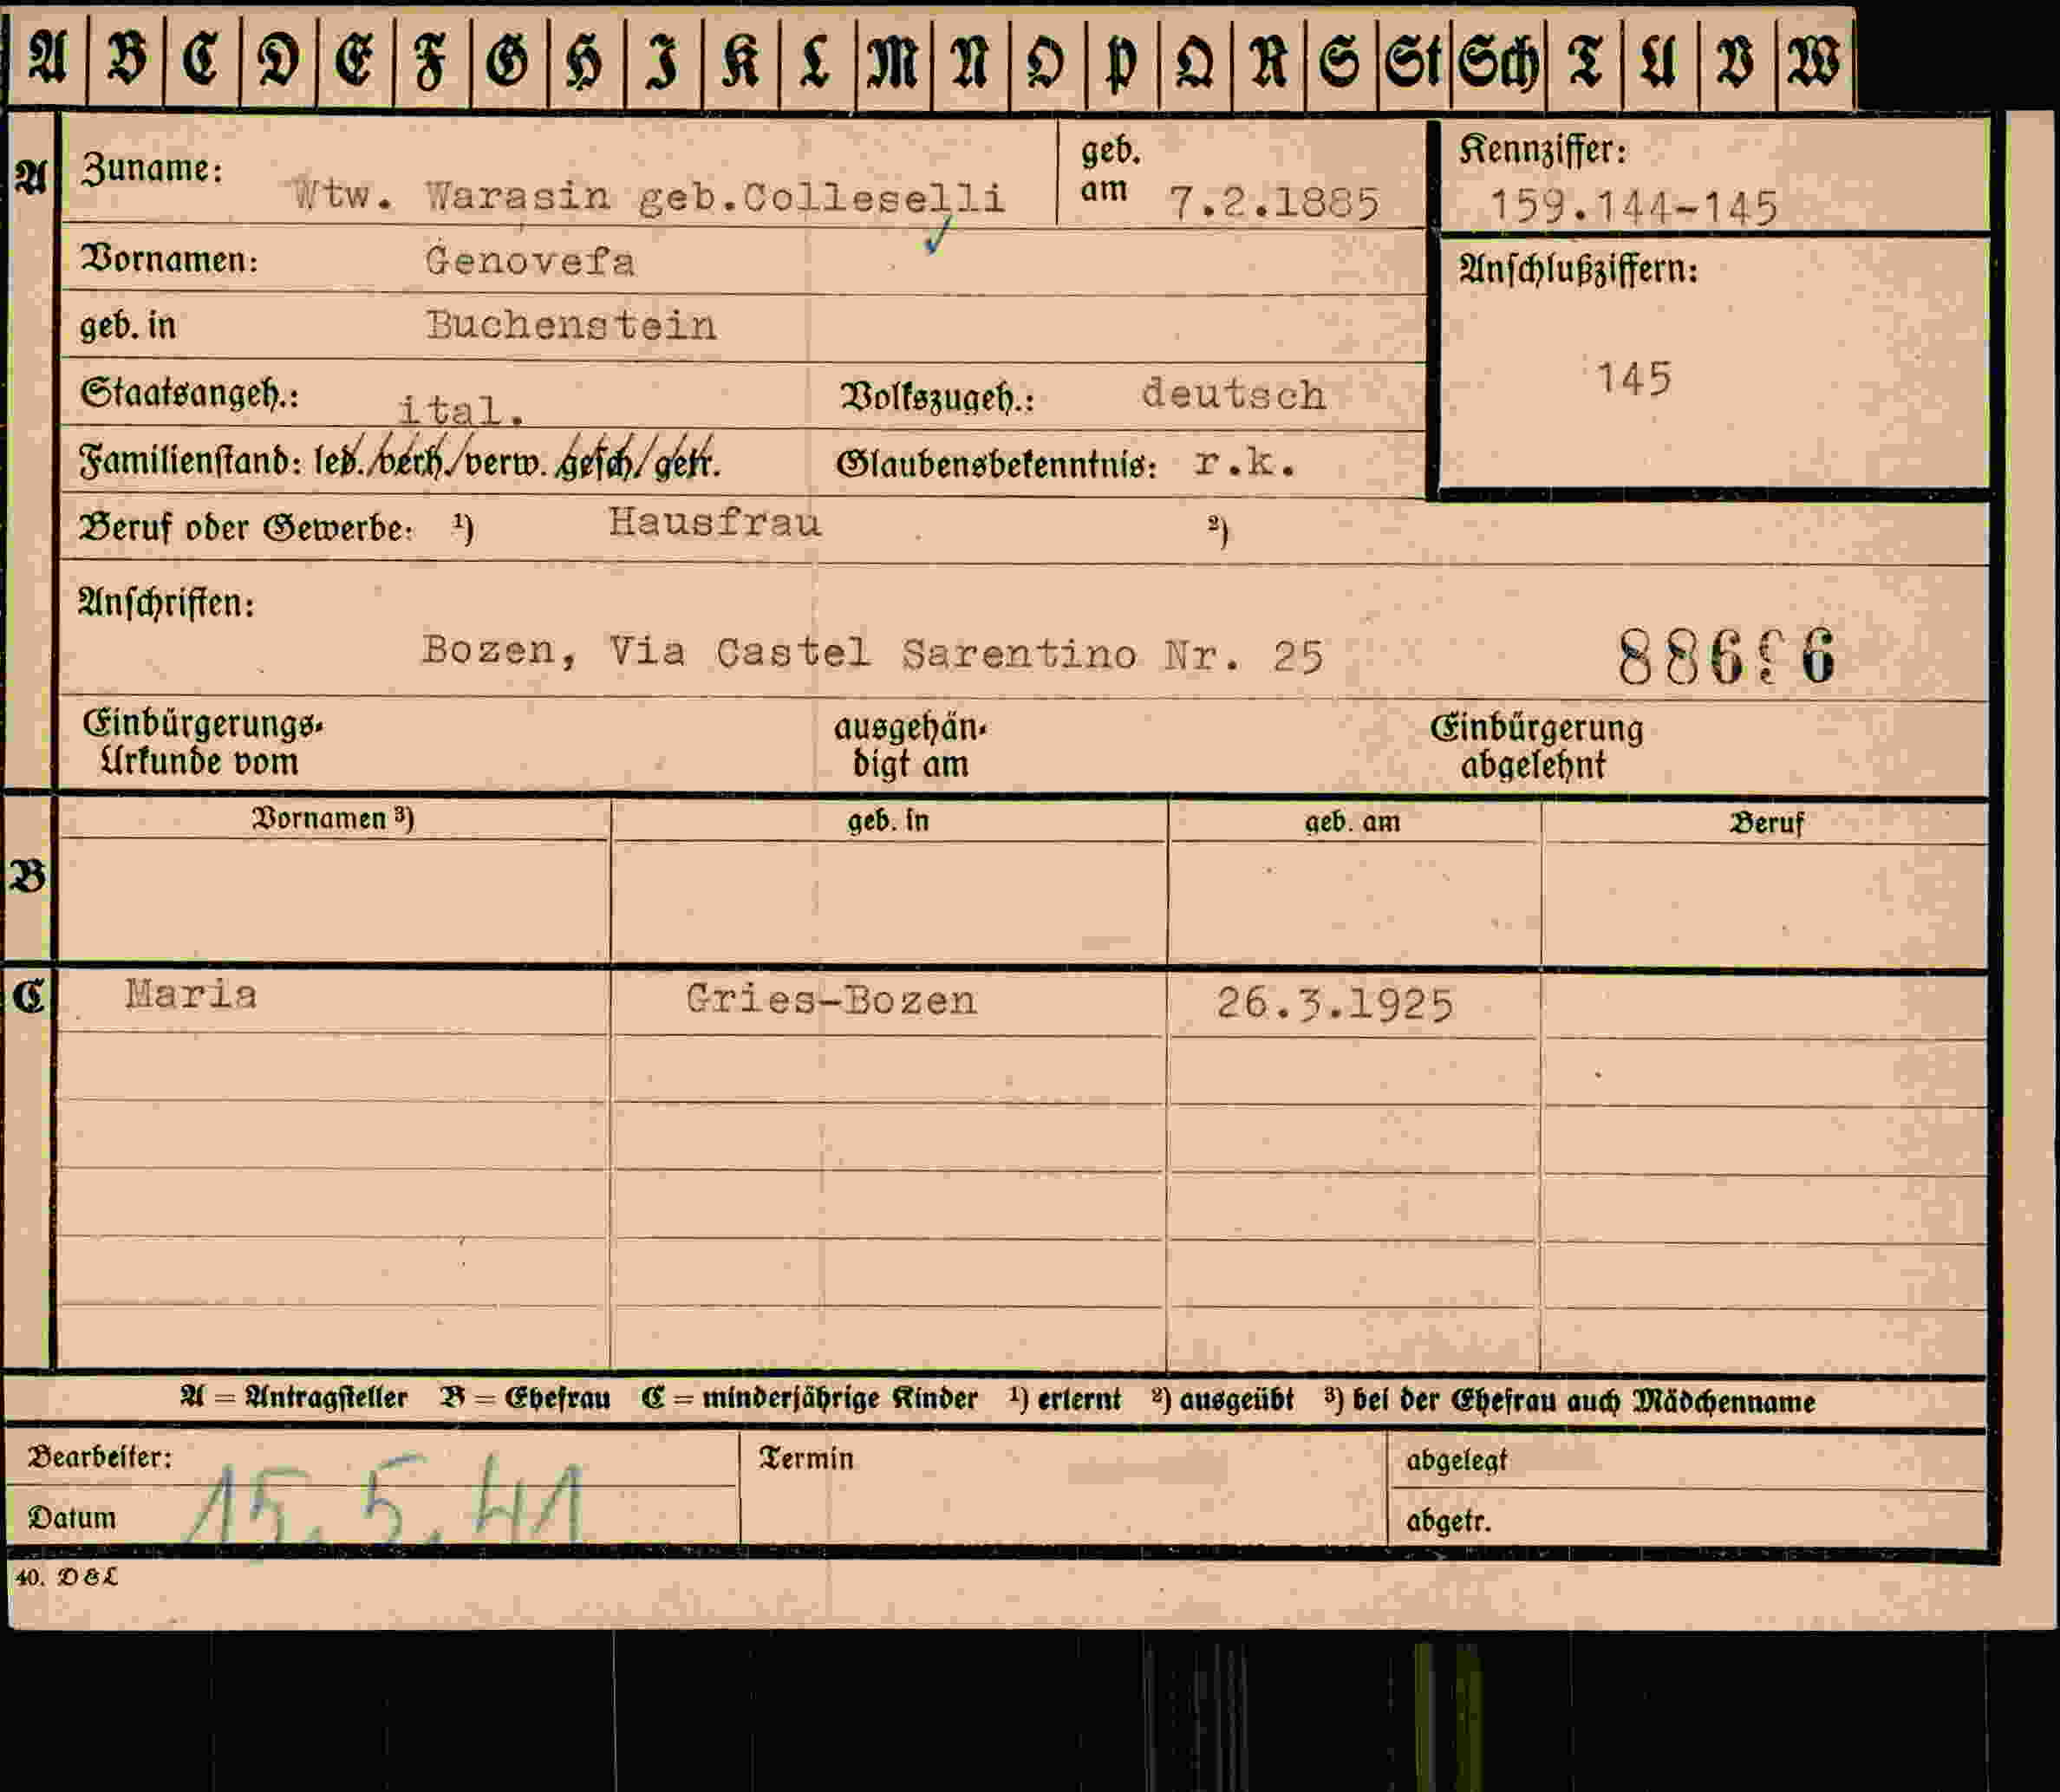 A B C D E F G H I K L M N O P Q R S St Sch T U V W
A
Zuname: Wtw. Warasin geb.Colleselli
geb. am 7.2.1885
Kennziffer:
159.144-145
Vornamen: Genovefa
Anschlußziffern:
145
geb. in Buchenstein
Staatsangeh.: ital. Volkszugeh.: deutsch
Familienstand: led./verh./verw. gesch/getr. Glaubensbekenntnis: r.k.
Beruf oder Gewerbe: ¹) Hausfrau ²)
Anschriften:
Bozen, Via Castel Sarentino Nr. 25
Einbürgerungs-
Urkunde vom
ausgehän-
digt am
Einbürgerung
abgelehnt
Vornamen ³) geb. in geb. am Beruf
B
C Maria Gries-Bozen 26.3.1925
A = Antragsteller B = Ehefrau C = minderjährige Kinder ¹) erlernt ²) ausgeübt ³) bei der Ehefrau auch Mädchenname
Bearbeiter:
Datum 15.5.41
Termin
abgelegt
abgetr.
40. D&L